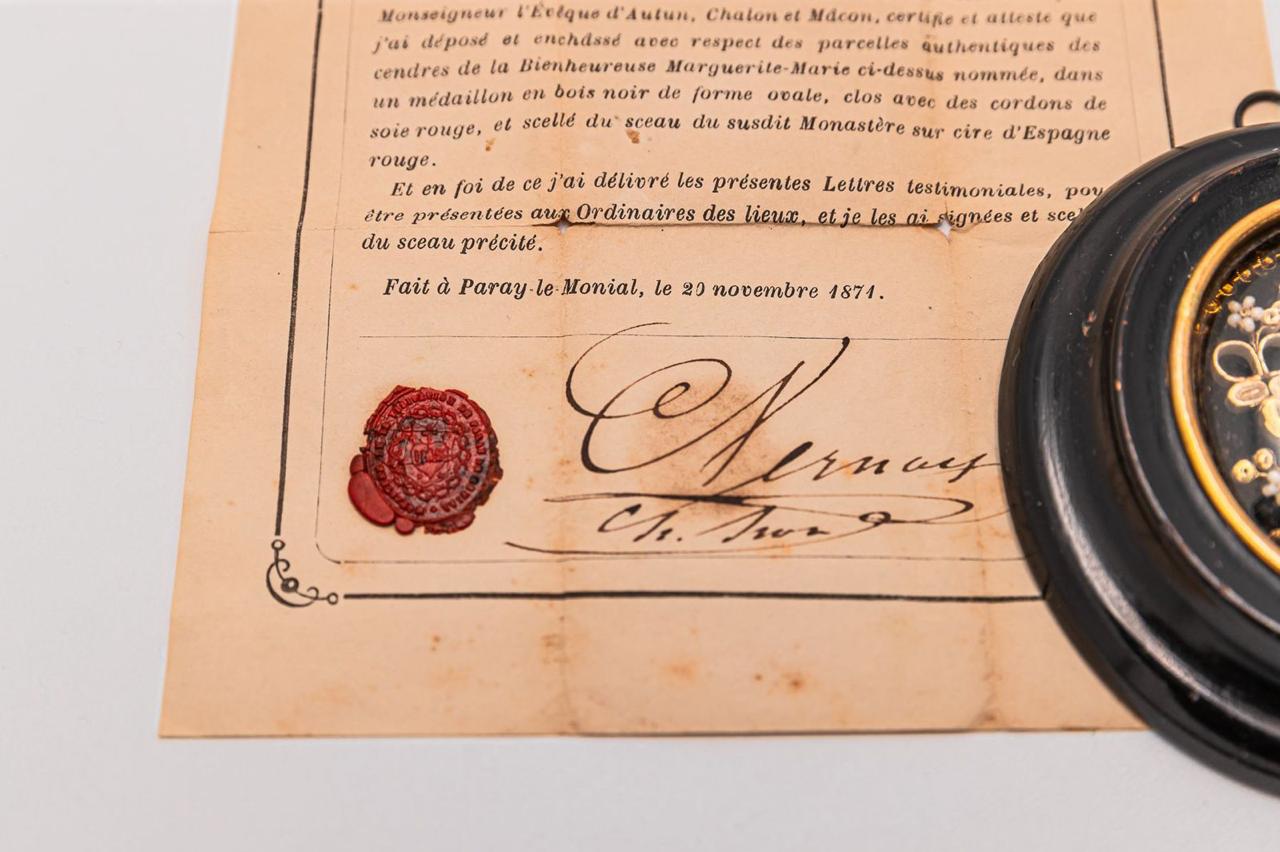 Monseigneur l'Évêque d'Autun, Chalon et Mâcon, certifie et atteste que
j'ai déposé et enchâssé avec respect des parcelles authentiques des
cendres de la Bienheureuse Marguerite-Marie ci-dessus nommée, dans
un médaillon en bois noir de forme ovale, clos avec des cordons de
soie rouge, et scellé du sceau du susdit Monastère sur cire d'Espagne
rouge.
Et en foi de ce j'ai délivré les présentes Lettres testimoniales, pou
être présentées aux Ordinaires des lieux, et je les ai signées et sce
du sceau précité.
Fait à Paray-le-Monial, le 20 novembre 1871.